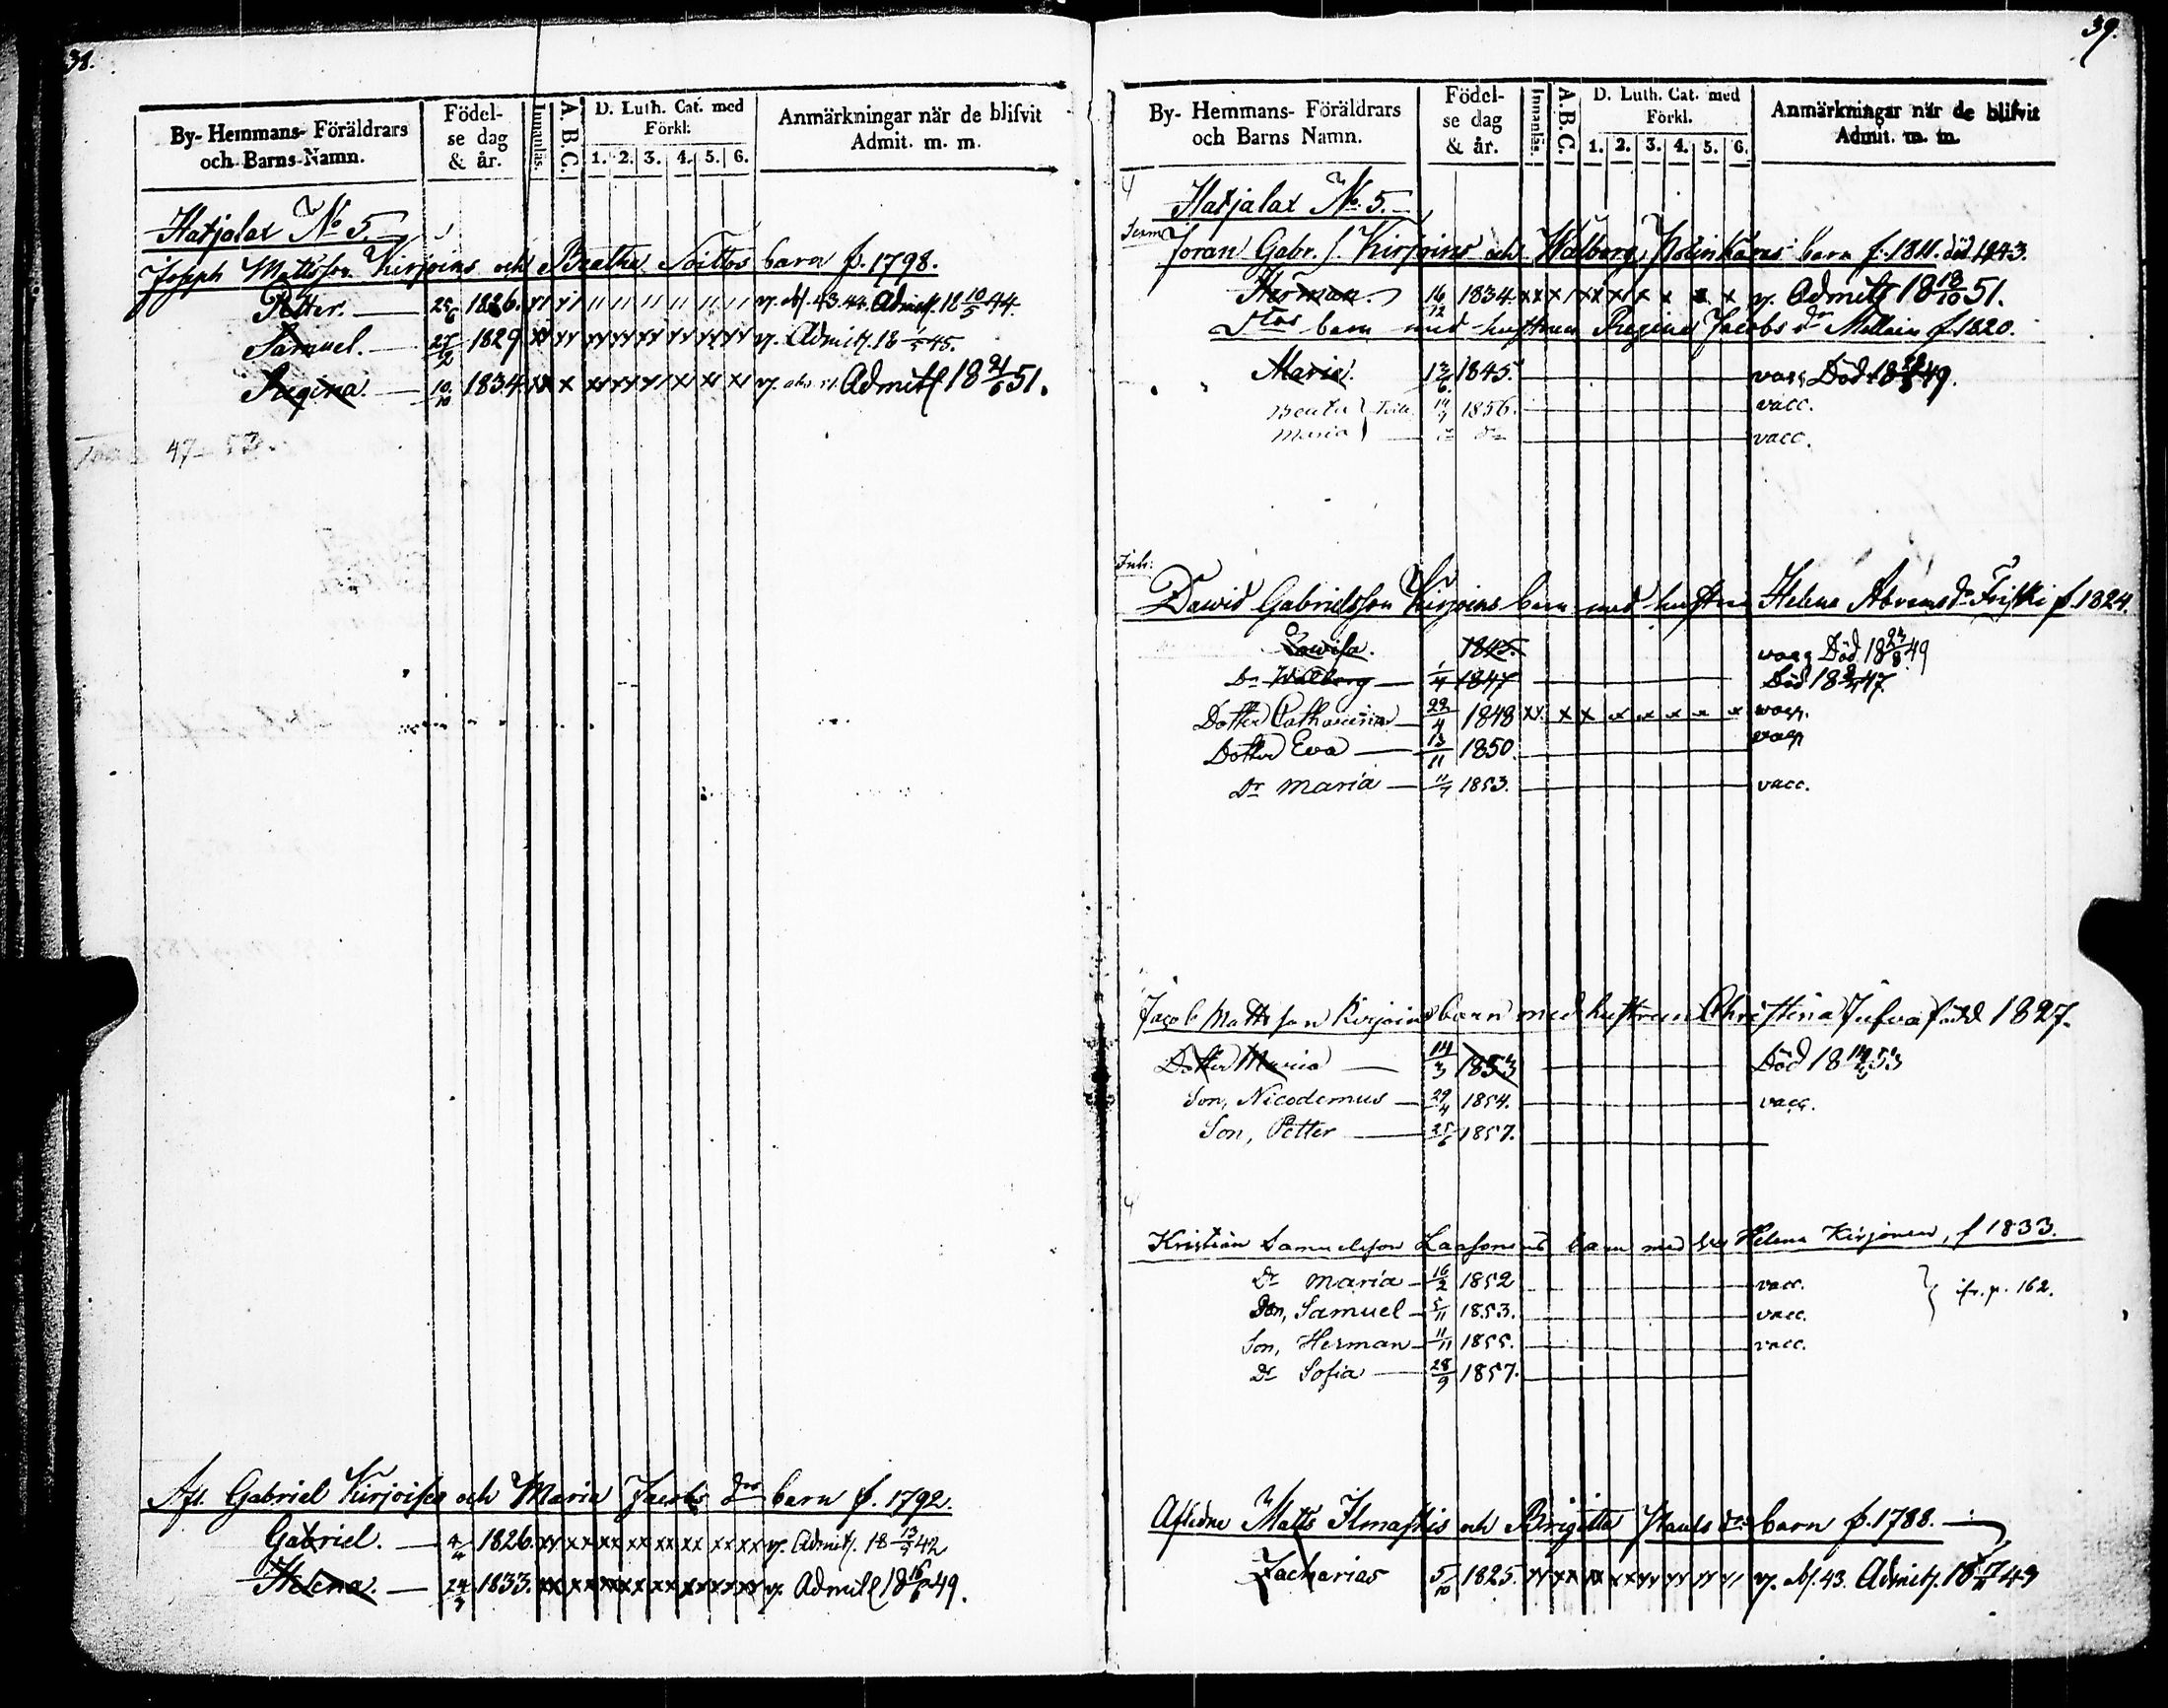 38.
By- Hemmans- Föräldrars och Barns Namn. Födel-se dag & år. Innanläs. A.B.C. D. Luth. Cat. med Förkl: 1. 2. 3. 4. 5. 6. Anmärkningar när de blifvit Admit. m. m.
Hatjalax No 5.
Joseph Mattsson Kirjoins och Beatha Soittos barn f. 1798.
Petter. 25/6 1826. Admitt. 18 10/5 44.
Samuel. 27/2 1829 Admitt. 18 45.
Regina. 10/10 1834. Admitt 18 21/6 51.
47 - 57.
Afl. Gabriel Kirjoises och Maria Jacobs dr barn f. 1792.
Gabriel. 1826. Admitt. 18 42
Helena. 1833. Admitt 18 16/6 49.
39.
By- Hemmans- Föräldrars och Barns Namn. Födel-se dag & år. Innanläs. A.B.C. D. Luth. Cat. med Förkl. 1. 2. 3. 4. 5. 6. Anmärkningar när de blifvit Admit. m. m.
Hatjalax No 5.
Joran Gabr. s. Kirjoins och Walborg barn f. 1811. död 1843.
Herman. 16/12 1834 Admitt 18 18/10 51.
barn med hustrun Regina Jacobs dr Mellain f. 1820.
Maria. 13/6 1845. vacc. Död 18 49.
Beata 1856. vacc.
Maria vacc.
Inh:
David Gabrielsson Kirjoins barn med hustrun Helena Abrams dr f. 1824.
Lovisa. 1845. vacc Död 18 23/8 49
Dr Walborg 1/4 1847 Död 18 47
Dotter Catharina 22/4 1848 vacc.
Dotter Eva 13/11 1850. vacc
Dr Maria 11/7 1853. vacc.
Jacob Mattsson Kirjoins barn med hustrun Christina född 1827.
Dotter Maria 14/3 1853 Död 18 53
Son, Nicodemus 29/4 1854. vacc.
Son, Petter 25/6 1857.
Kristian Samuelsson Laasonens barn med h. Helena Kirjonen, f 1833.
Dr Maria 16/2 1852 vacc.
Son, Samuel 5/11 1853. vacc. p. 162.
Son, Herman 11/11 1855. vacc.
Dr Sofia 28/9 1857.
Aflidne Matts Ilmastis och Brigitta Pauls dr barn f. 1788.
Zacharias 5/10 1825. 43. Admitt. 18 43